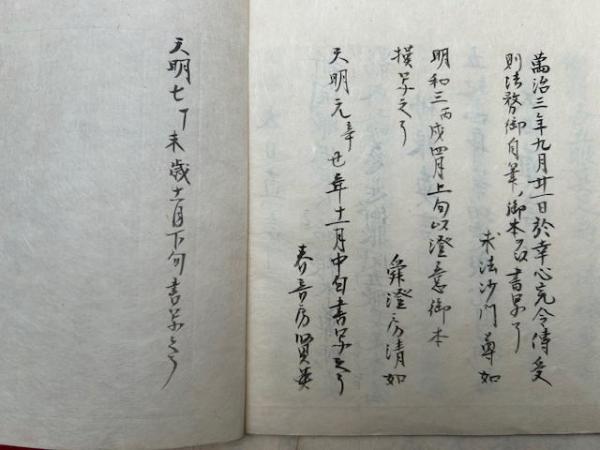 萬治三年九月廿一日於幸心院令傳受
則法務御自筆ノ御本ヲ以書写了
求法沙門尊如
明和三丙戌四月上旬以澄意御本
模写之了
舜澄房清如
天明元辛丑年十一月中旬書写之了
春音房賢英
天明七丁未歳十一月下旬書写之了